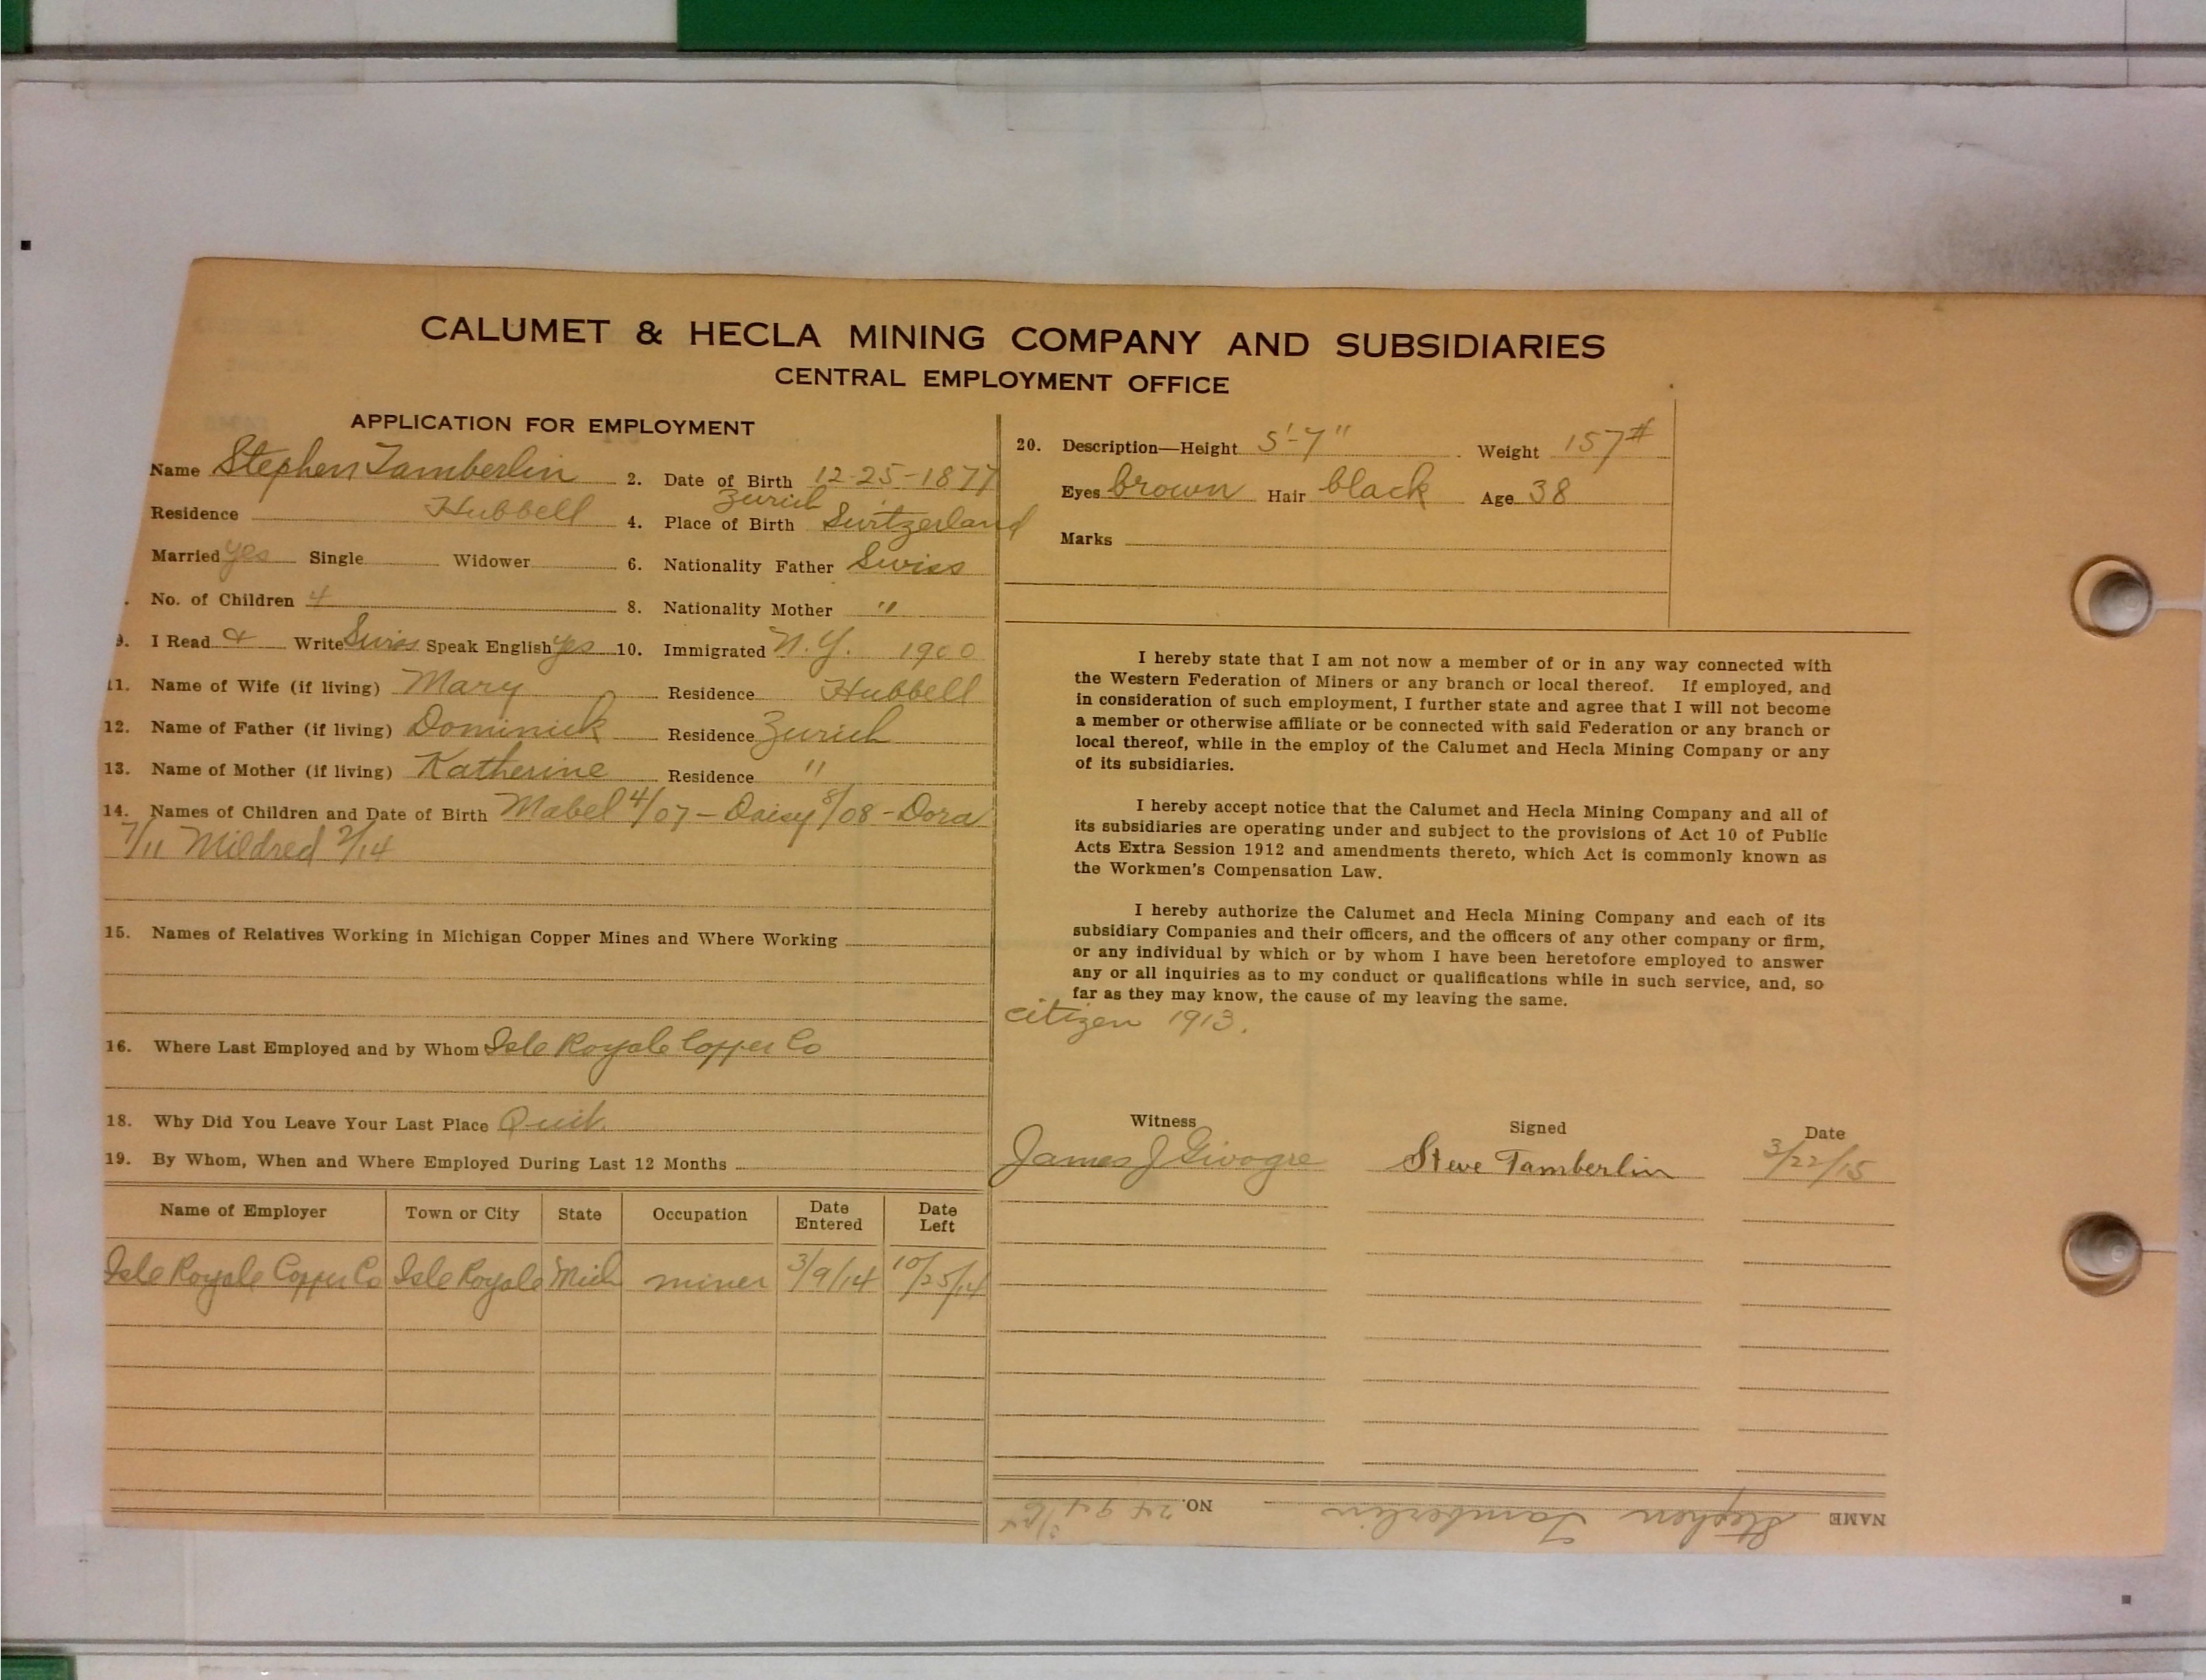 CALUMET & HECLA MINING COMPANY AND SUBSIDIARIES
CENTRAL EMPLOYMENT OFFICE
APPLICATION FOR EMPLOYMENT
Name Stephen Tamberlin 2. Date of Birth 12-25-1877
Residence Hubbell 4. Place of Birth Zurich Switzerland
Married yes Single Widower 6. Nationality Father Swiss
No. of Children 4 8. Nationality Mother "
9. I Read & Write Swiss Speak English yes 10. Immigrated N.Y. 1900
11. Name of Wife (if living) Mary Residence Hubbell
12. Name of Father (if living) Dominick Residence Zurich
13. Name of Mother (if living) Katherine Residence "
14. Names of Children and Date of Birth Mabel 4/07 - Daisy 8/08 - Dora
7/11 Mildred 2/14
15. Names of Relatives Working in Michigan Copper Mines and Where Working
16. Where Last Employed and by Whom Isle Royale Copper Co
18. Why Did You Leave Your Last Place Quit
19. By Whom, When and Where Employed During Last 12 Months
Name of Employer Town or City State Occupation Date Entered Date Left
Isle Royale Copper Co Isle Royale Mich miner 3/9/14 10/25/14
20. Description—Height 5'-7" Weight 157#
Eyes brown Hair black Age 38
Marks
I hereby state that I am not now a member of or in any way connected with
the Western Federation of Miners or any branch or local thereof. If employed, and
in consideration of such employment, I further state and agree that I will not become
a member or otherwise affiliate or be connected with said Federation or any branch or
local thereof, while in the employ of the Calumet and Hecla Mining Company or any
of its subsidiaries.
I hereby accept notice that the Calumet and Hecla Mining Company and all of
its subsidiaries are operating under and subject to the provisions of Act 10 of Public
Acts Extra Session 1912 and amendments thereto, which Act is commonly known as
the Workmen's Compensation Law.
I hereby authorize the Calumet and Hecla Mining Company and each of its
subsidiary Companies and their officers, and the officers of any other company or firm,
or any individual by which or by whom I have been heretofore employed to answer
any or all inquiries as to my conduct or qualifications while in such service, and, so
far as they may know, the cause of my leaving the same.
citizen 1913.
Witness Signed Date
James J Steve Tamberlin 3/22/15
NAME Stephen Tamberlin NO. 2494